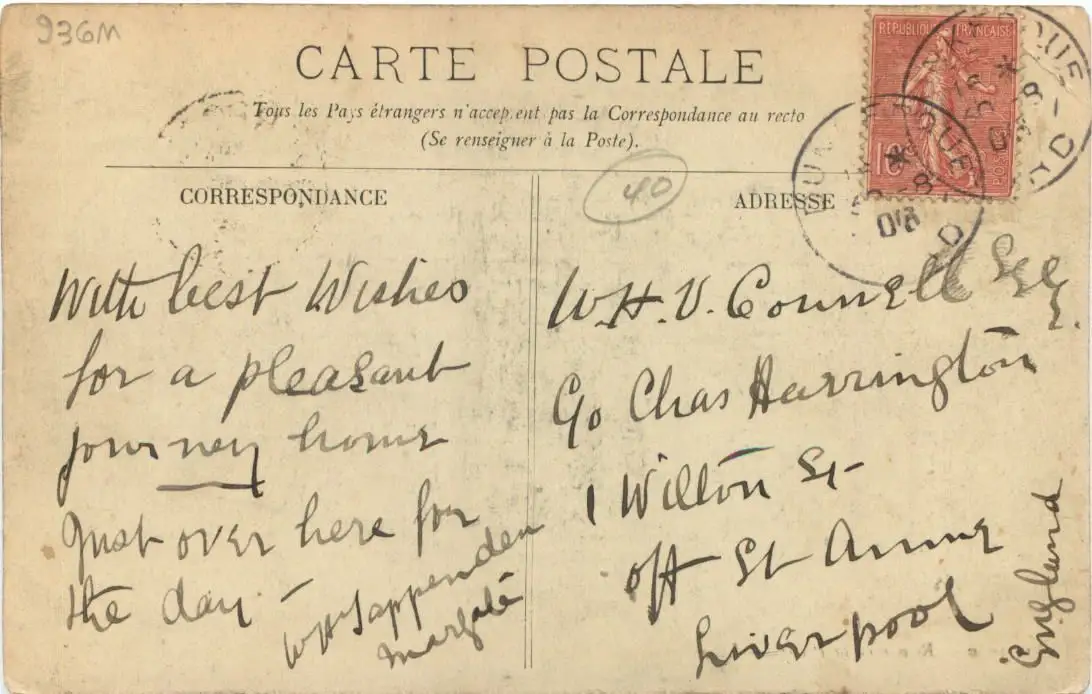 936M
CARTE POSTALE
Tous les Pays étrangers n'acceptent pas la Correspondance au recto
(Se renseigner à la Poste).
RÉPUBLIQUE FRANÇAISE
10
POSTES
DUNKERQUE
16 * -8
06
NORD
40
CORRESPONDANCE
With best Wishes
for a pleasant
journey home
Just over here for
the day -
Margate
ADRESSE
W. H. V. Connell Esq
C/o Chas Harrington
1 Wilton St
off St Anne
Liverpool
England